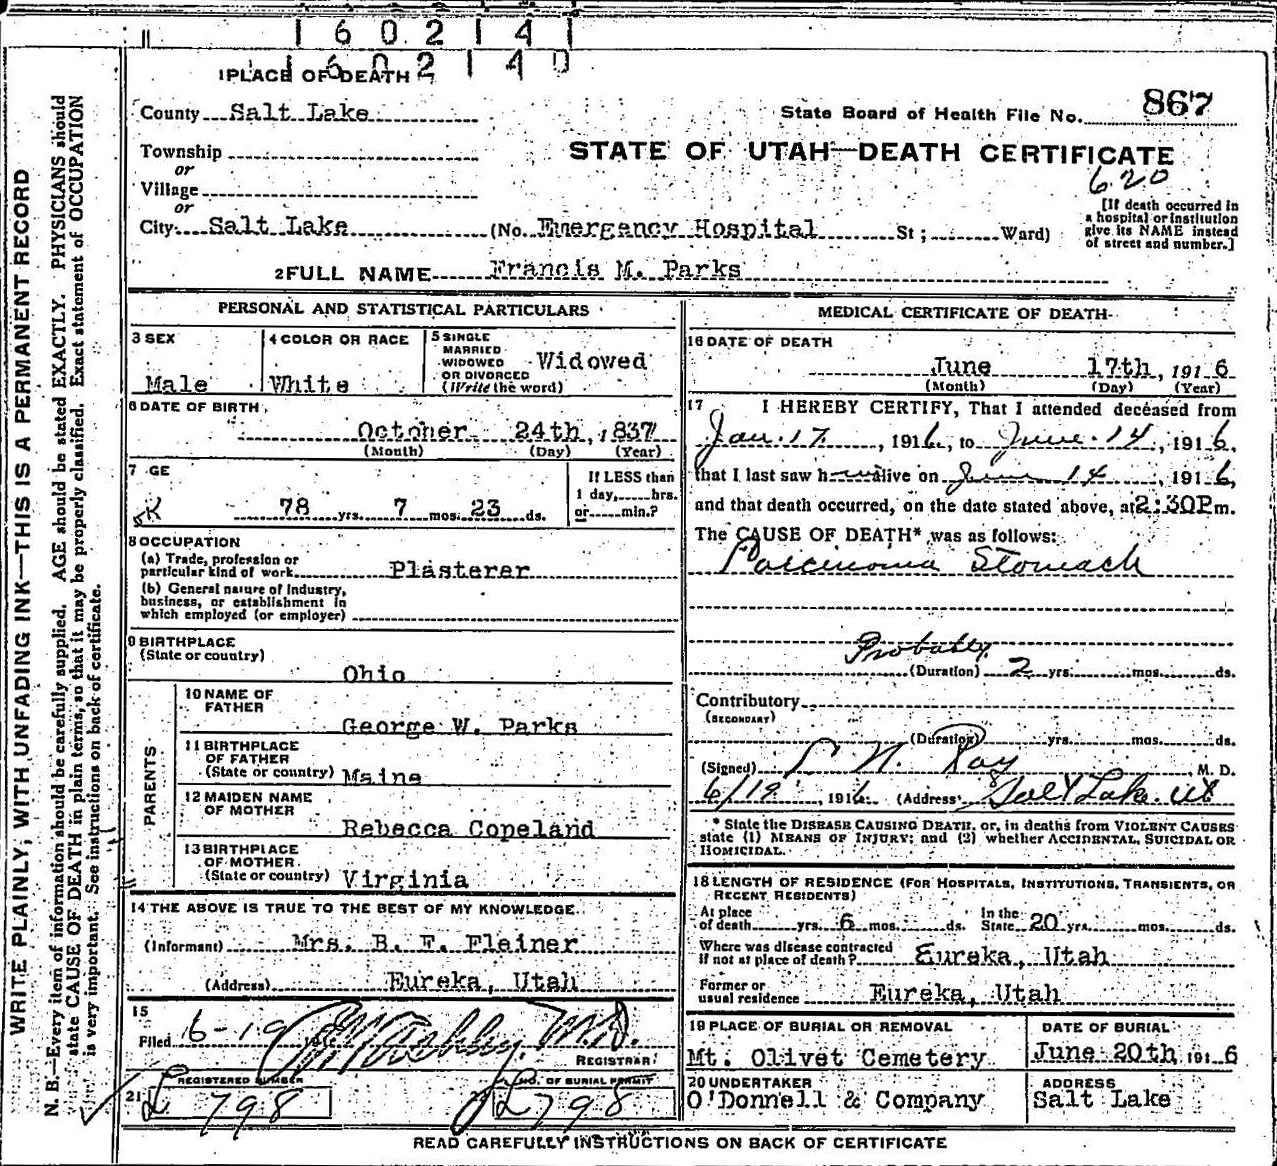 160214
160214
1 PLACE OF DEATH
County Salt Lake
State Board of Health File No. 867
Township
or
Village
or
City Salt Lake (No. Emergency Hospital St; Ward)
STATE OF UTAH—DEATH CERTIFICATE
620
[If death occurred in
a hospital or institution
give its NAME instead
of street and number.]
2 FULL NAME Francis M. Parks
PERSONAL AND STATISTICAL PARTICULARS
3 SEX
Male
4 COLOR OR RACE
White
5 SINGLE
MARRIED
WIDOWED
OR DIVORCED
(Write the word)
Widowed
6 DATE OF BIRTH
October 24th, 1837
(Month) (Day) (Year)
7 GE
78 yrs. 7 mos. 23 ds.
If LESS than
1 day, hrs.
or min.?
8 OCCUPATION
(a) Trade, profession or
particular kind of work Plasterer
(b) General nature of Industry,
business, or establishment in
which employed (or employer)
9 BIRTHPLACE
(State or country)
Ohio
PARENTS
10 NAME OF
FATHER
George W. Parks
11 BIRTHPLACE
OF FATHER
(State or country) Maine
12 MAIDEN NAME
OF MOTHER
Rebecca Copeland
13 BIRTHPLACE
OF MOTHER
(State or country) Virginia
14 THE ABOVE IS TRUE TO THE BEST OF MY KNOWLEDGE
(Informant) Mrs. B. F. Fleiner
(Address) Eureka, Utah
15
Filed 6-19 M.D.
REGISTRAR
21 REGISTERED NUMBER
L 798
NO. OF BURIAL PERMIT
L 798
MEDICAL CERTIFICATE OF DEATH
16 DATE OF DEATH
June 17th, 1916
(Month) (Day) (Year)
17 I HEREBY CERTIFY, That I attended deceased from
Jan. 17, 1916, to June 14, 1916,
that I last saw h alive on June 14, 1916,
and that death occurred, on the date stated above, at 2:30P m.
The CAUSE OF DEATH* was as follows:
Carcinoma Stomach
Probably
(Duration) 2 yrs. mos. ds.
Contributory
(SECONDARY)
(Duration) yrs. mos. ds.
(Signed) N. Ray, M. D.
6/19, 1916 (Address) Salt Lake. Ut
* State the DISEASE CAUSING DEATH, or, in deaths from VIOLENT CAUSES
state (1) MEANS OF INJURY; and (2) whether ACCIDENTAL, SUICIDAL OR
HOMICIDAL.
18 LENGTH OF RESIDENCE (FOR HOSPITALS, INSTITUTIONS, TRANSIENTS, OR
RECENT RESIDENTS)
At place
of death yrs. 6 mos. ds. In the
State 20 yrs. mos. ds.
Where was disease contracted
if not at place of death? Eureka, Utah
Former or
usual residence Eureka, Utah
19 PLACE OF BURIAL OR REMOVAL
Mt. Olivet Cemetery
DATE OF BURIAL
June 20th 1916
20 UNDERTAKER
O'Donnell & Company
ADDRESS
Salt Lake
READ CAREFULLY INSTRUCTIONS ON BACK OF CERTIFICATE
WRITE PLAINLY, WITH UNFADING INK—THIS IS A PERMANENT RECORD
N. B.—Every item of information should be carefully supplied. AGE should be stated EXACTLY. PHYSICIANS should
state CAUSE OF DEATH in plain terms, so that it may be properly classified. Exact statement of OCCUPATION
is very important. See instructions on back of certificate.